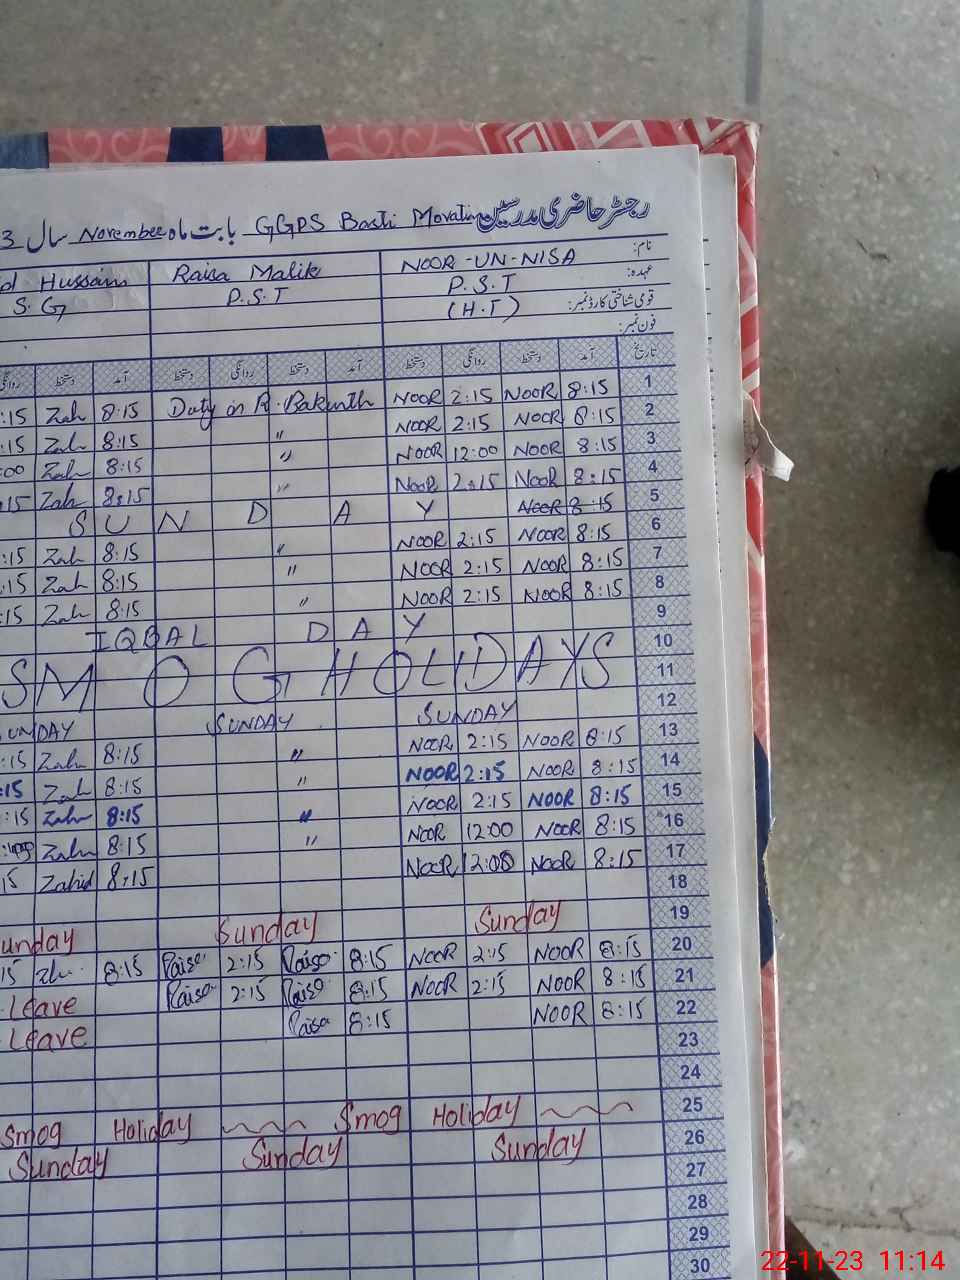 رجسٹر حاضری مدرسین GGPS Basti Movatin بابت ماہ November سال 3
نام: NOOR-UN-NISA Raisa Malik Hussain
عہدہ: P.S.T P.S.T S.G
قومی شناختی کارڈ نمبر: (H.T)
فون نمبر:
تاریخ آمد دستخط روانگی دستخط آمد دستخط روانگی دستخط آمد دستخط روانگی
:15 Zah 8:15 Duty in R. NOOR 2:15 NOOR 8:15 1
:15 Zah 8:15 〃 NOOR 2:15 NOOR 8:15 2
:00 Zah 8:15 〃 NOOR 12:00 NOOR 8:15 3
:15 Zah 8:15 〃 NOOR 2:15 NOOR 8:15 4
SUNDAY NOOR 8:15 5
:15 Zah 8:15 〃 NOOR 2:15 NOOR 8:15 6
:15 Zah 8:15 〃 NOOR 2:15 NOOR 8:15 7
:15 Zah 8:15 〃 NOOR 2:15 NOOR 8:15 8
IQBAL DAY 9
SMOG HOLIDAYS 10
11
SUNDAY SUNDAY SUNDAY 12
:15 Zah 8:15 〃 NOOR 2:15 NOOR 8:15 13
:15 Zah 8:15 〃 NOOR 2:15 NOOR 8:15 14
:15 Zah 8:15 〃 NOOR 2:15 NOOR 8:15 15
Zah 8:15 〃 NOOR 12:00 NOOR 8:15 16
15 Zahid 8:15 NOOR 12:00 NOOR 8:15 17
18
unday Sunday Sunday 19
15 8:15 Raisa 2:15 Raisa 8:15 NOOR 2:15 NOOR 8:15 20
Leave Raisa 2:15 Raisa 8:15 NOOR 2:15 NOOR 8:15 21
Leave Raisa 8:15 NOOR 8:15 22
23
24
Smog Holiday Smog Holiday 25
Sunday Sunday Sunday 26
27
28
29
30
22-11-23 11:14